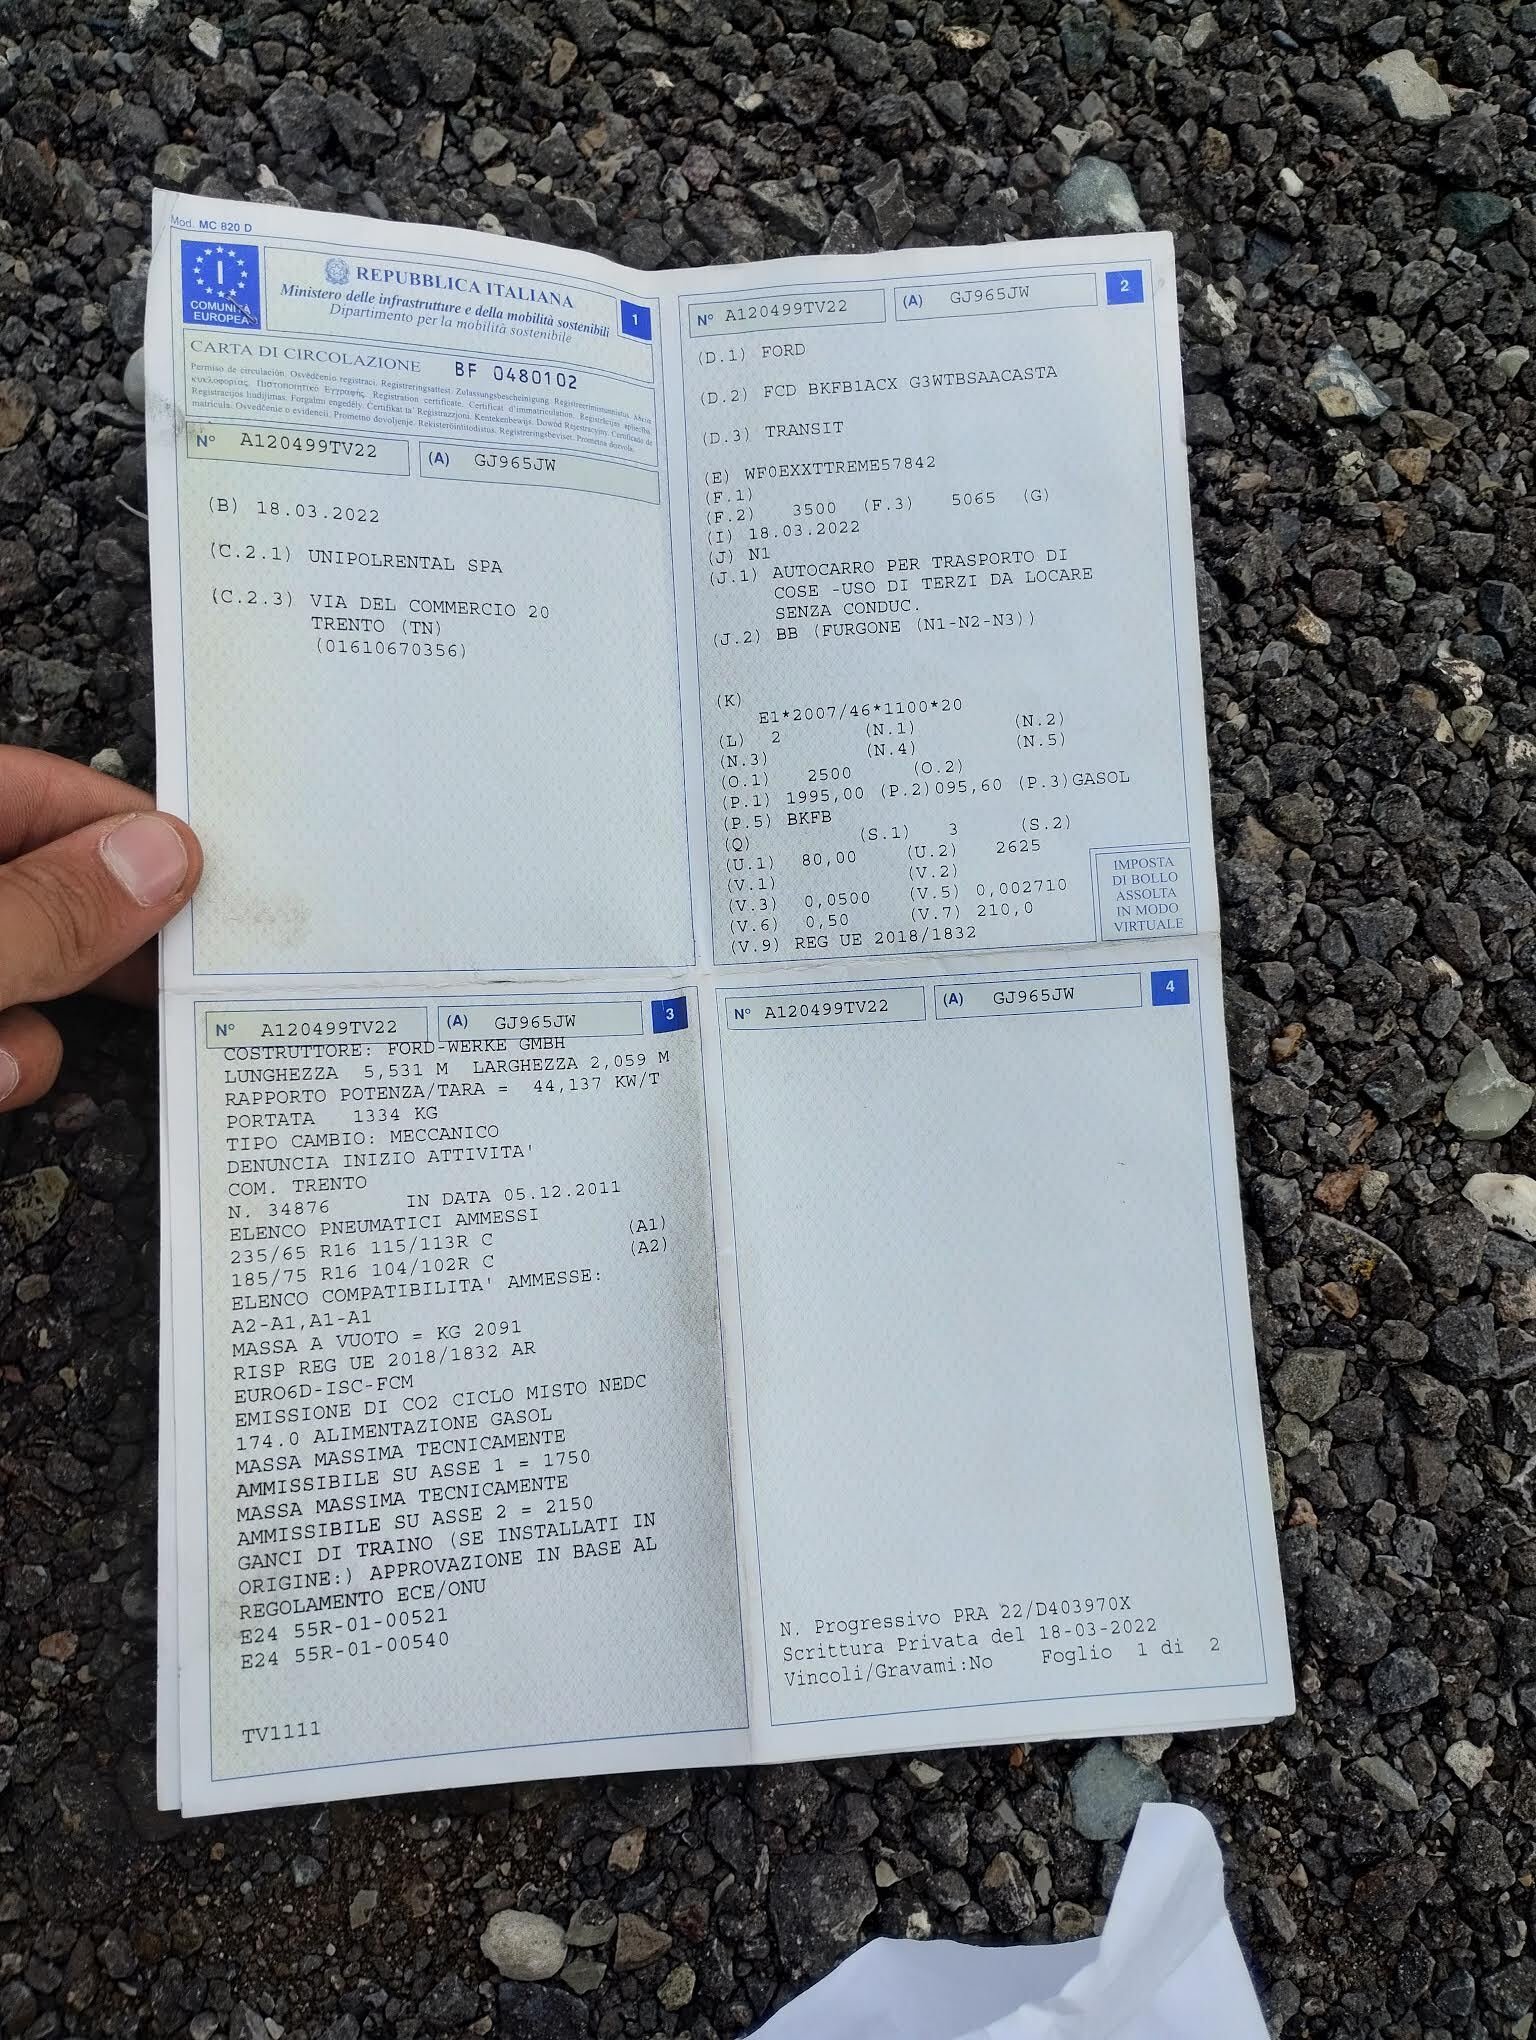 Mod. MC 820 D
I
COMUNITÀ
EUROPEA
REPUBBLICA ITALIANA
Ministero delle infrastrutture e della mobilità sostenibili
Dipartimento per la mobilità sostenibile
1
CARTA DI CIRCOLAZIONE BF 0480102
Permiso de circulación. Osvědčenio registraci. Registreringsattest. Zulassungsbescheinigung. Registreerimistunnistus. Άδεια
κυκλοφορίας. Πιστοποιητικό Εγγραφής. Registration certificate. Certificat d'immatriculation. Reģistrācijas apliecība.
Registracijos liudijimas. Forgalmi engedély. Ċertifikat ta' Reġistrazzjoni. Kentekenbewijs. Dowód Rejestracyjny. Certificado de
matrícula. Osvedčenie o evidencii. Prometno dovoljenje. Rekisteröintitodistus. Registreringsbeviset. Prometna dozvola.
N° A120499TV22 (A) GJ965JW
(B) 18.03.2022
(C.2.1) UNIPOLRENTAL SPA
(C.2.3) VIA DEL COMMERCIO 20
TRENTO (TN)
(01610670356)
N° A120499TV22 (A) GJ965JW 2
(D.1) FORD
(D.2) FCD BKFB1ACX G3WTBSAACASTA
(D.3) TRANSIT
(E) WF0EXXTTREME57842
(F.1)
(F.2) 3500 (F.3) 5065 (G)
(I) 18.03.2022
(J) N1
(J.1) AUTOCARRO PER TRASPORTO DI
COSE -USO DI TERZI DA LOCARE
SENZA CONDUC.
(J.2) BB (FURGONE (N1-N2-N3))
(K)
E1*2007/46*1100*20
(L) 2 (N.1) (N.2)
(N.3) (N.4) (N.5)
(O.1) 2500 (O.2)
(P.1) 1995,00 (P.2)095,60 (P.3)GASOL
(P.5) BKFB
(Q) (S.1) 3 (S.2)
(U.1) 80,00 (U.2) 2625
(V.1) (V.2)
(V.3) 0,0500 (V.5) 0,002710
(V.6) 0,50 (V.7) 210,0
(V.9) REG UE 2018/1832
IMPOSTA
DI BOLLO
ASSOLTA
IN MODO
VIRTUALE
N° A120499TV22 (A) GJ965JW 3
COSTRUTTORE: FORD-WERKE GMBH
LUNGHEZZA 5,531 M LARGHEZZA 2,059 M
RAPPORTO POTENZA/TARA = 44,137 KW/T
PORTATA 1334 KG
TIPO CAMBIO: MECCANICO
DENUNCIA INIZIO ATTIVITA'
COM. TRENTO
N. 34876 IN DATA 05.12.2011
ELENCO PNEUMATICI AMMESSI
235/65 R16 115/113R C (A1)
185/75 R16 104/102R C (A2)
ELENCO COMPATIBILITA' AMMESSE:
A2-A1,A1-A1
MASSA A VUOTO = KG 2091
RISP REG UE 2018/1832 AR
EURO6D-ISC-FCM
EMISSIONE DI CO2 CICLO MISTO NEDC
174.0 ALIMENTAZIONE GASOL
MASSA MASSIMA TECNICAMENTE
AMMISSIBILE SU ASSE 1 = 1750
MASSA MASSIMA TECNICAMENTE
AMMISSIBILE SU ASSE 2 = 2150
GANCI DI TRAINO (SE INSTALLATI IN
ORIGINE:) APPROVAZIONE IN BASE AL
REGOLAMENTO ECE/ONU
E24 55R-01-00521
E24 55R-01-00540
TV1111
N° A120499TV22 (A) GJ965JW 4
N. Progressivo PRA 22/D403970X
Scrittura Privata del 18-03-2022
Vincoli/Gravami:No Foglio 1 di 2